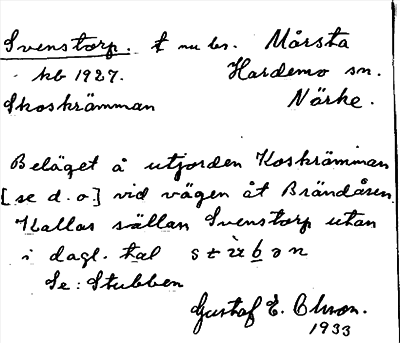 Svenstorp. t nu br. Mårsta
kb 1927. Hardemo sn.
Skoskrämman Närke.
Beläget å utjorden Koskrämman
[se d.o.] vid vägen åt Brändåsen.
Kallas sällan Svenstorp utan
i dagl. tal
Se: Stubben
Gustaf E. Olsson.
1933